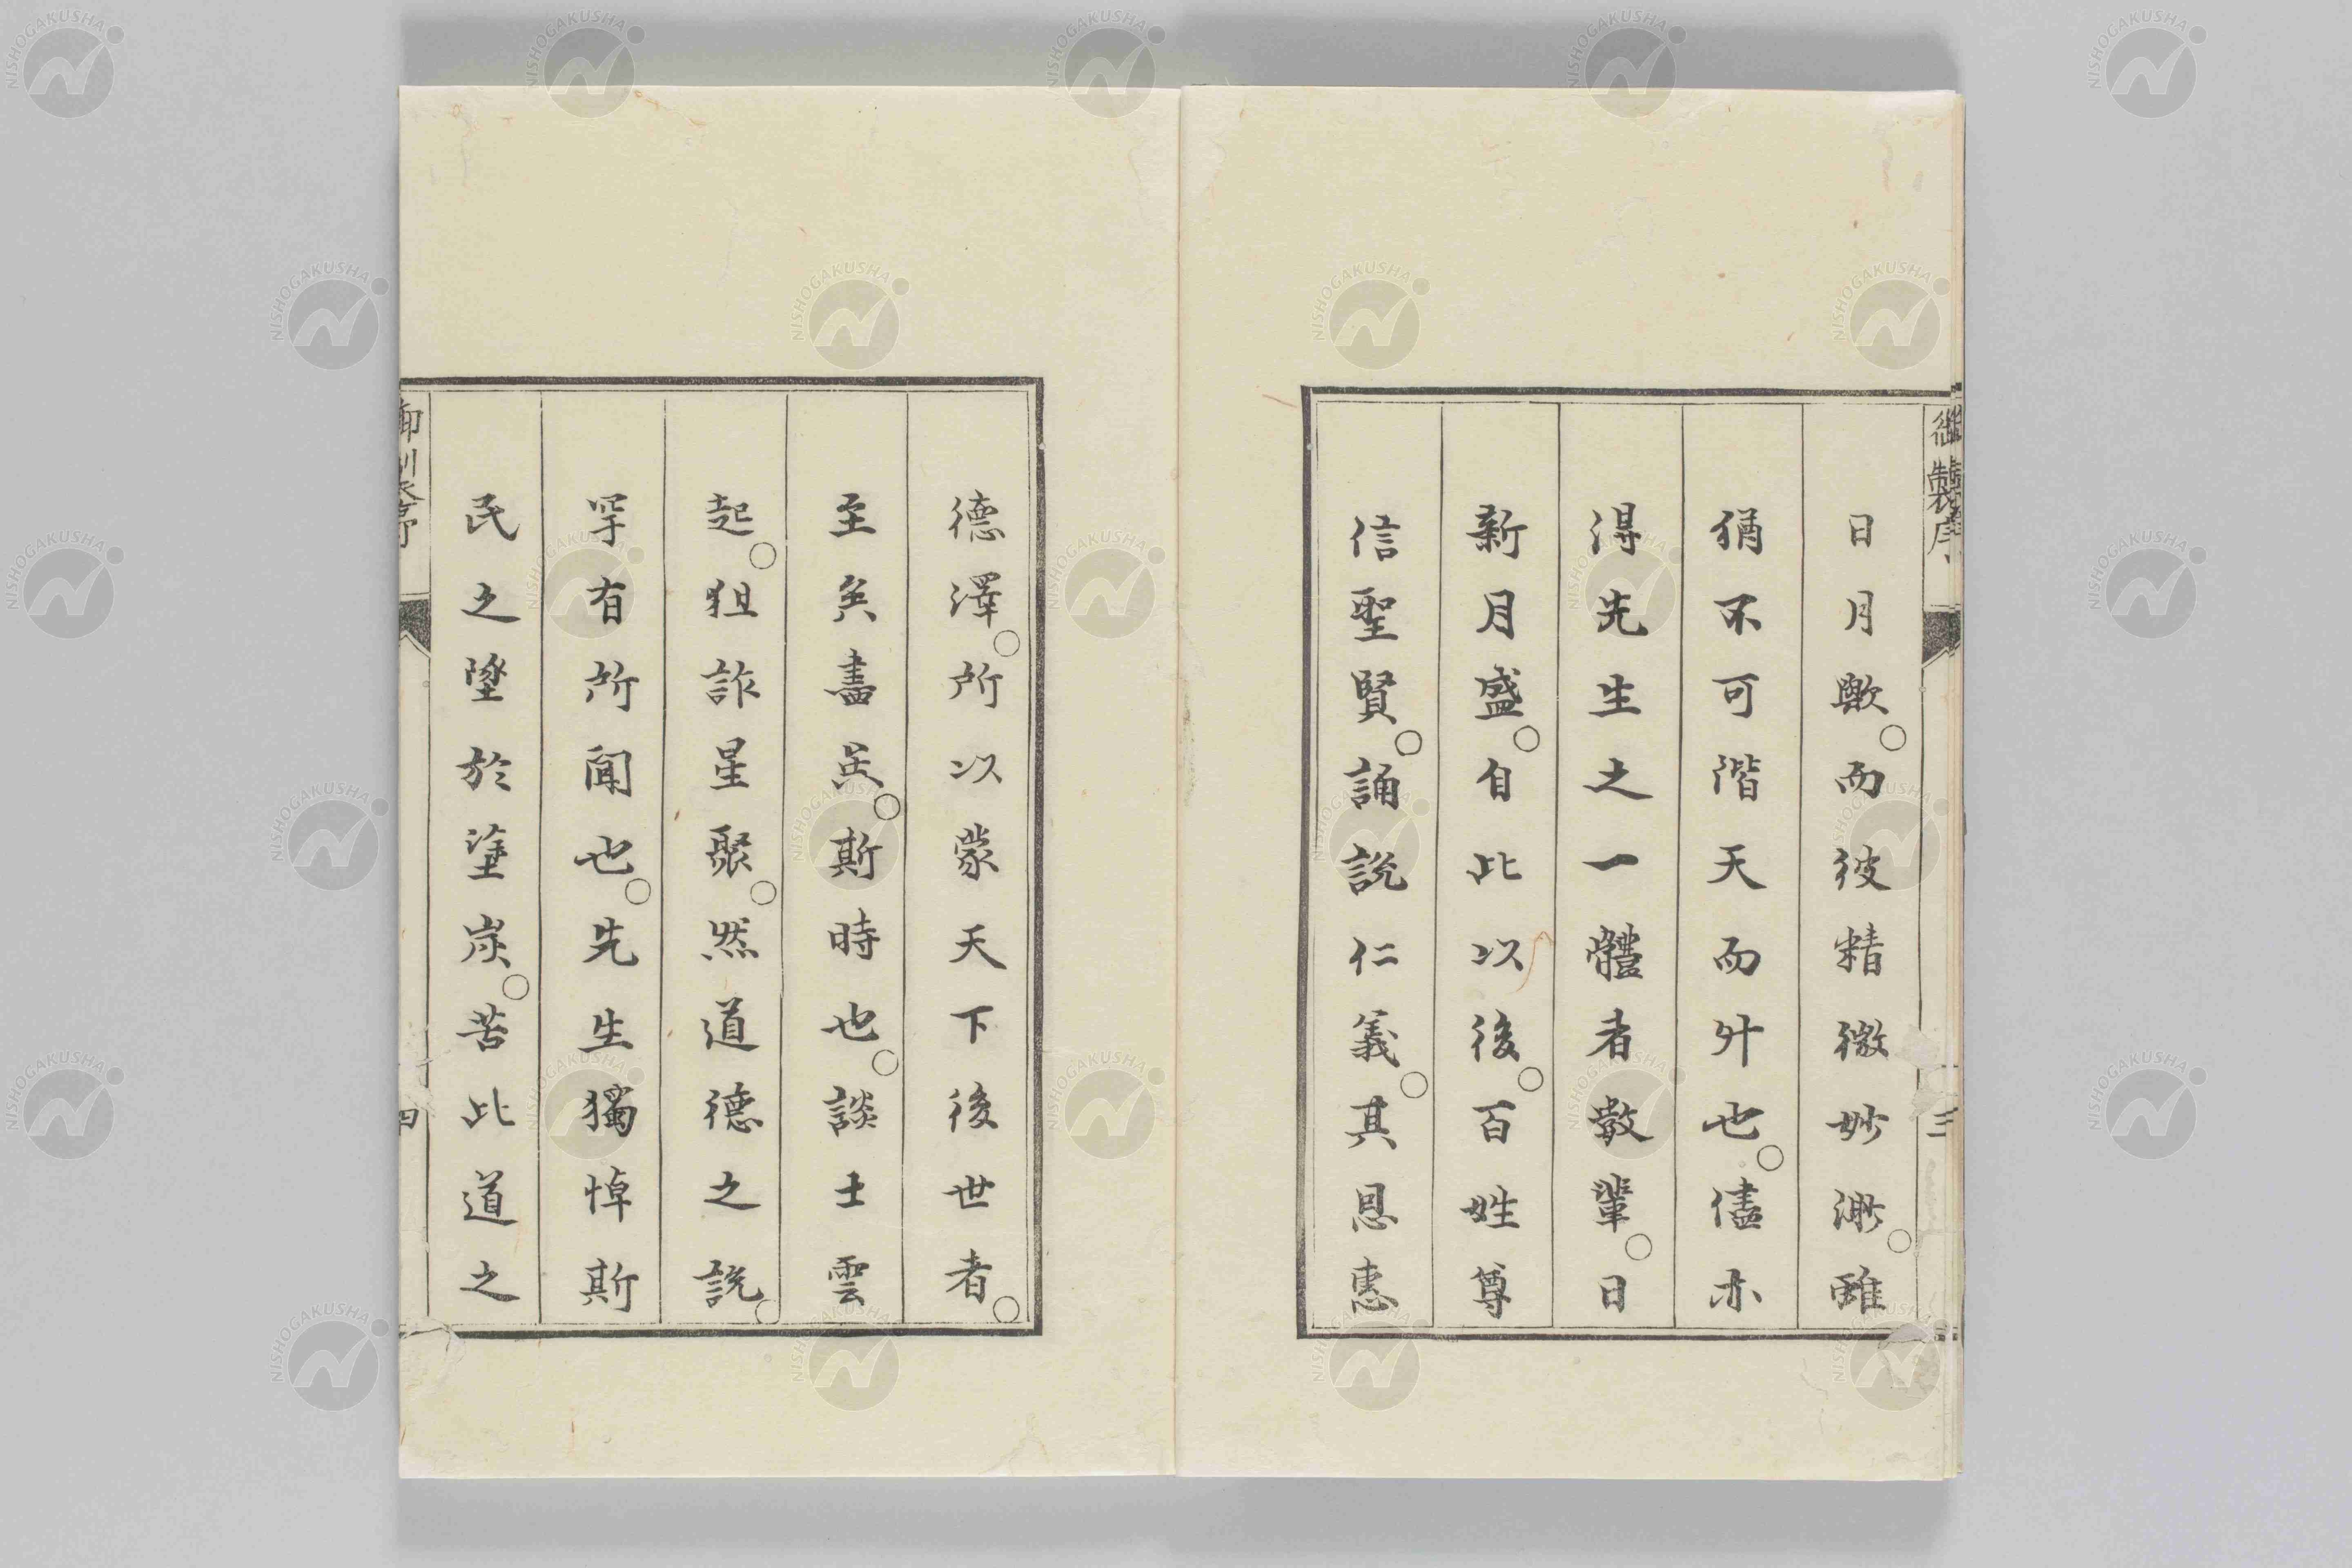 御製序
三
日月歟○而彼精微妙渺○雖
猶不可階天而升也○儘亦
得先生之一體者數輩○日
新月盛○自此以後○百姓尊
信聖賢○誦說仁義○其恩惠
德澤○所以蒙天下後世者○
至矣盡矣○斯時也○談士雲
起○狙詐星聚○然道德之說○
罕有所聞也○先生獨悼斯
民之墜於塗炭○苦此道之
四
NISHOGAKUSHA